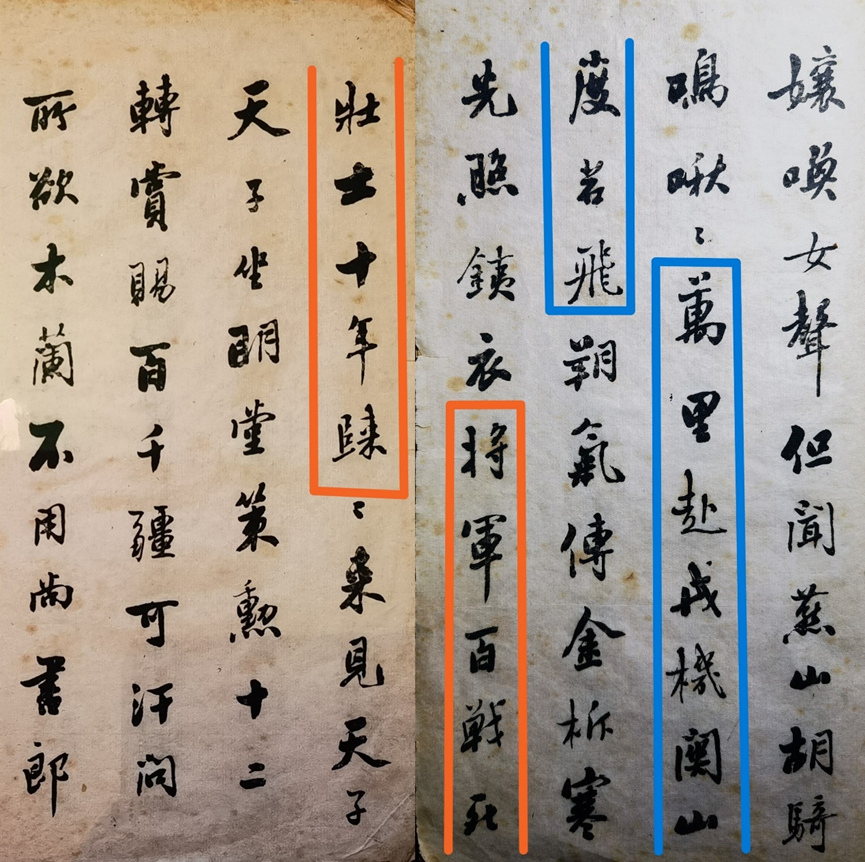 孃喚女聲但聞燕山胡騎
鳴啾〻萬里赴戎機關山
度若飛朔氣傳金柝寒
光照銕衣將軍百戰死
壯士十年歸〻来見天子
天子坐明堂策勳十二
轉賞賜百千疆可汗問
所欲木蘭不用尚書郎